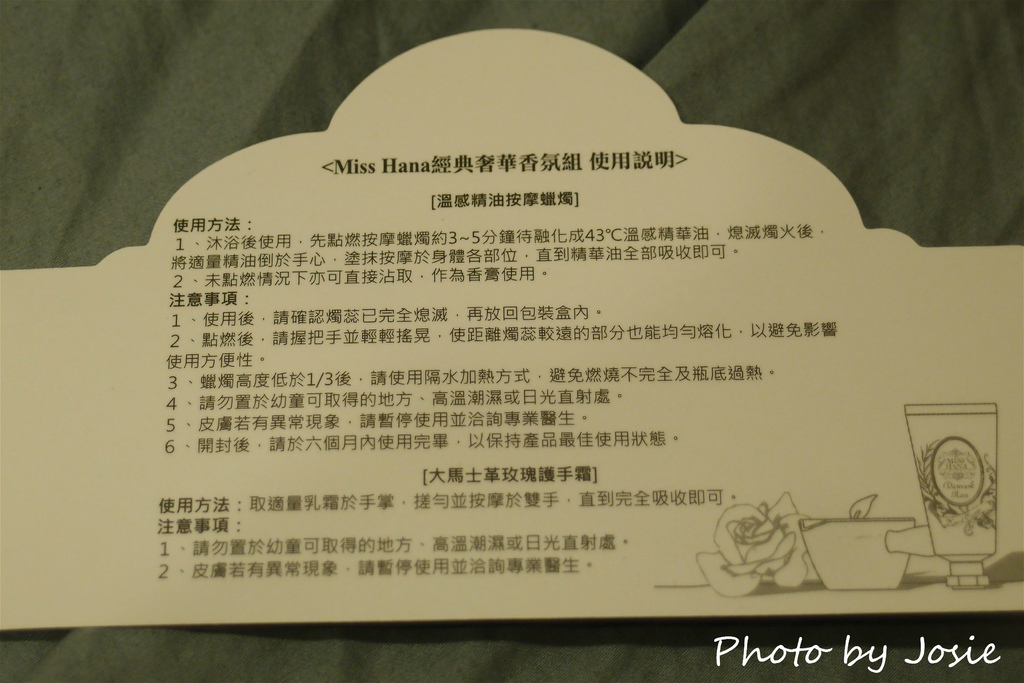 <Miss Hana經典奢華香氛組 使用說明>
[溫感精油按摩蠟燭]
使用方法：
1、沐浴後使用，先點燃按摩蠟燭約3~5分鐘待融化成43℃溫感精華油，熄滅燭火後，
將適量精油倒於手心，塗抹按摩於身體各部位，直到精華油全部吸收即可。
2、未點燃情況下亦可直接沾取，作為香膏使用。
注意事項：
1、使用後，請確認燭蕊已完全熄滅，再放回包裝盒內。
2、點燃後，請握把手並輕輕搖晃，使距離燭蕊較遠的部分也能均勻熔化，以避免影響
使用方便性。
3、蠟燭高度低於1/3後，請使用隔水加熱方式，避免燃燒不完全及瓶底過熱。
4、請勿置於幼童可取得的地方、高溫潮濕或日光直射處。
5、皮膚若有異常現象，請暫停使用並洽詢專業醫生。
6、開封後，請於六個月內使用完畢，以保持產品最佳使用狀態。
[大馬士革玫瑰護手霜]
使用方法：取適量乳霜於手掌，搓勻並按摩於雙手，直到完全吸收即可。
注意事項：
1、請勿置於幼童可取得的地方、高溫潮濕或日光直射處。
2、皮膚若有異常現象，請暫停使用並洽詢專業醫生。
Photo by Josie